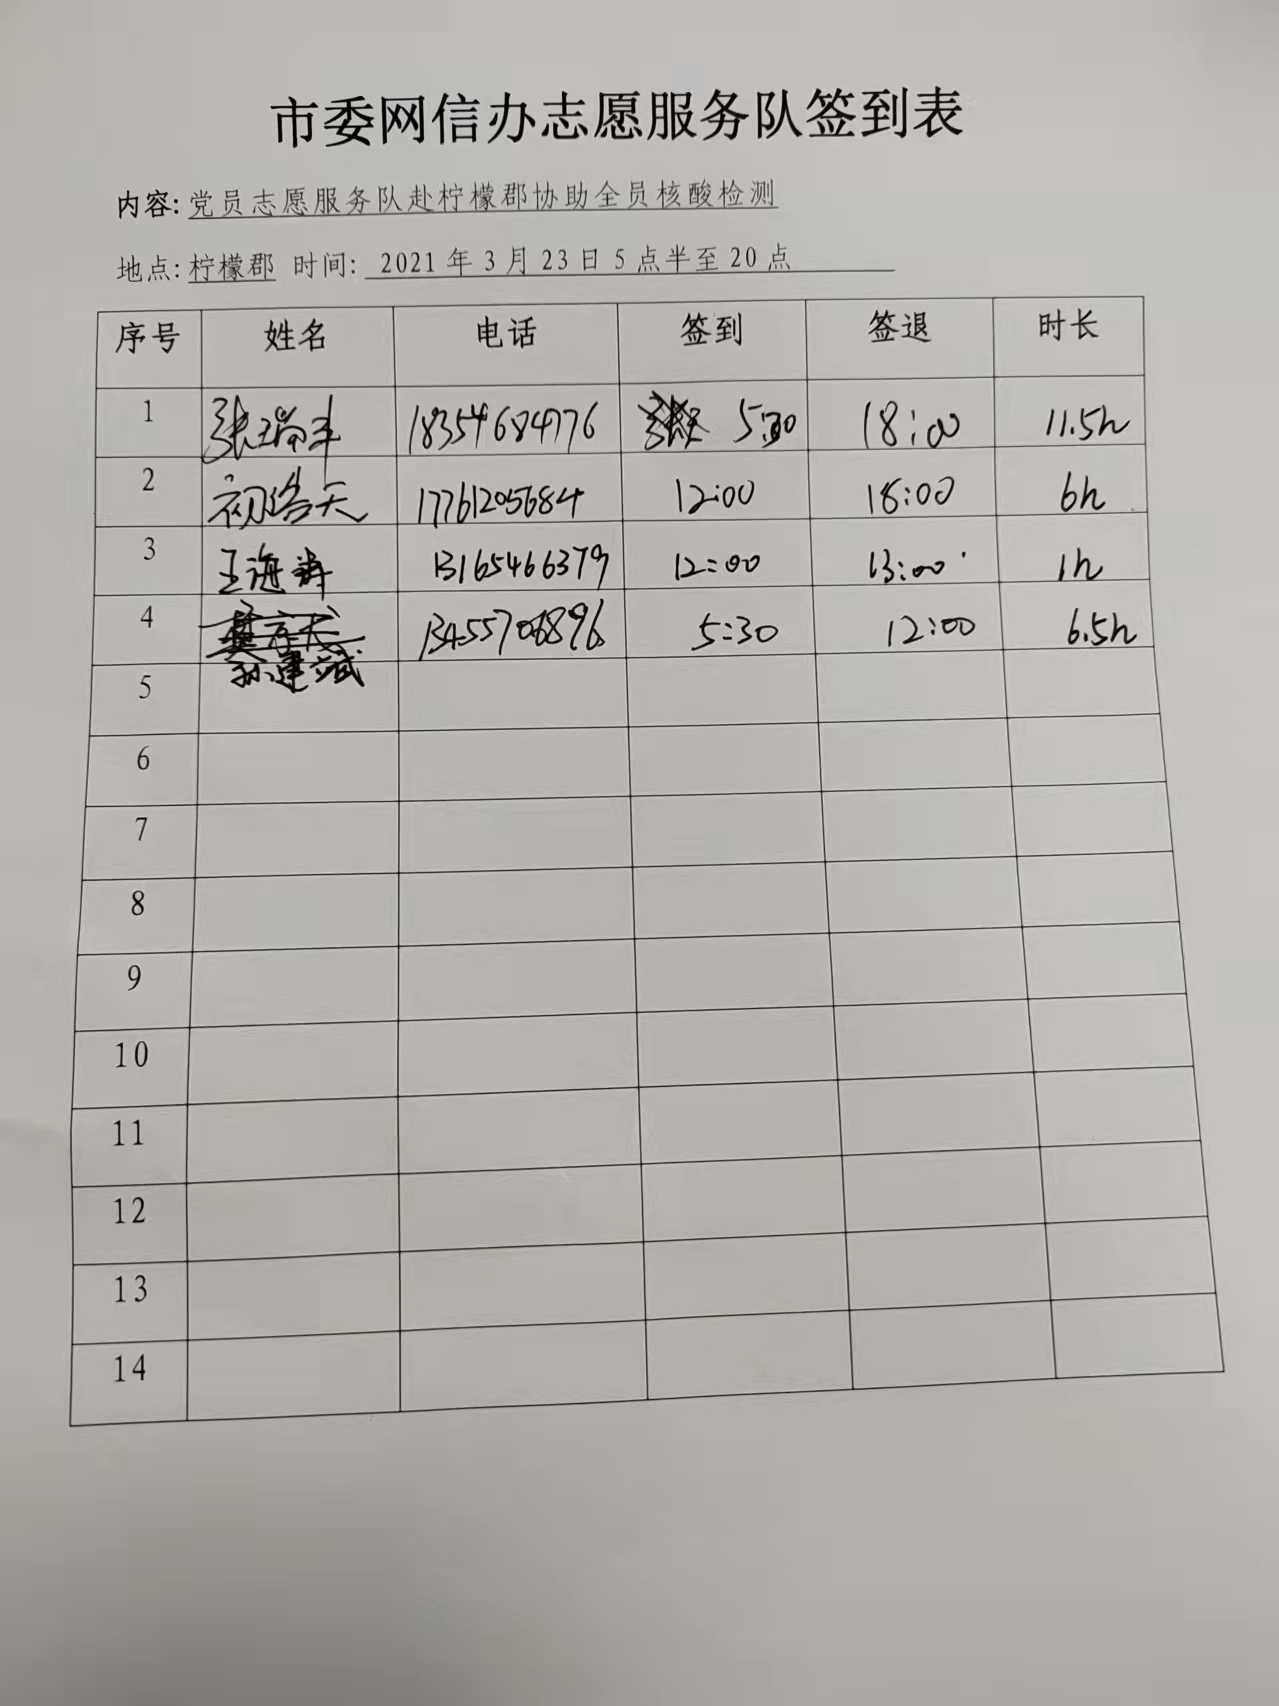 市委网信办志愿服务队签到表
内容: 党员志愿服务队赴柠檬郡协助全员核酸检测
地点: 柠檬郡 时间: 2021 年 3 月 23 日 5 点半至 20 点
序号 姓名 电话 签到 签退 时长
1 张瑞丰 18354684776 5:30 18:00 11.5h
2 初浩天 17761205684 12:00 18:00 6h
3 王海涛 13165466379 12:00 13:00 1h
4 13455706896 5:30 12:00 6.5h
孙建斌
5
6
7
8
9
10
11
12
13
14